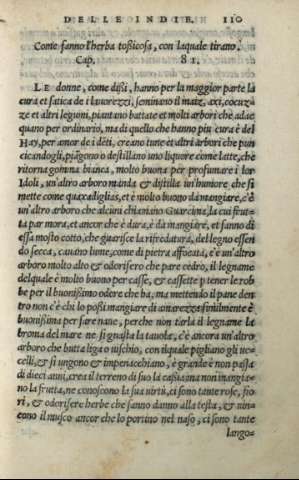 DELLE INDIE. 110
Come fanno l'herba tossicosa, con laquale tirano.
Cap. 81.
LE donne, come dissi, hanno per la maggior parte la
cura et fatica de i lauorezzi, seminano il maiz, axi, cocuz
ze et altri legumi, piantano battate et molti arbori che adac
quano per ordinario, ma di quello che hanno piu cura è del
Hay, per amor de i deti, creano tune et altri arbori che pun
cicandogli, piāgono o destillano uno liquore come latte, chè
ritorna gomma bianca, molto buona per profumare i lor
Idoli, un'altro arboro manda & distilla un'humore che si
mette come quaxadiglias, et è molto buono da mangiare, c'è
un'altro arboro che alcuni chiamano Guarcima, la cui frut
ta par mora, et ancor che è dura, è da mangiare, et fanno di
essa mosto cotto, che guarisce la rifredatura, del legno essen
do secca, cauano lume, come di pietra affocata, c'è un'altro
arboro molto alto & odorifero che pare cedro, il legname
delquale è molto buono per casse, & cassette per tener le rob
be per il buonissimo odere che ha, ma mettendo il pane den
tro non c'è chi lo possi mangiare di amarezza similmente è
buonissima per fare naue, perche non tarla il legname la
broma del mare ne si guasta la tauola, c'è ancora un'altro
arboro che butta liga o uischio, con ilquale pigliano gli uc-
celli, & si ungono & impenacchiano, è grande è non passa
di dieci anni, crea il terreno di suo la cassia ma non in mangia-
no la frutta, ne conoscono la sua uirtù, ci sono tante rose, fio
ri, & odorifere herbe che fanno danno alla testa, & uin-
cono il musco ancor che lo portino nel naso, ci sono tante
lango-